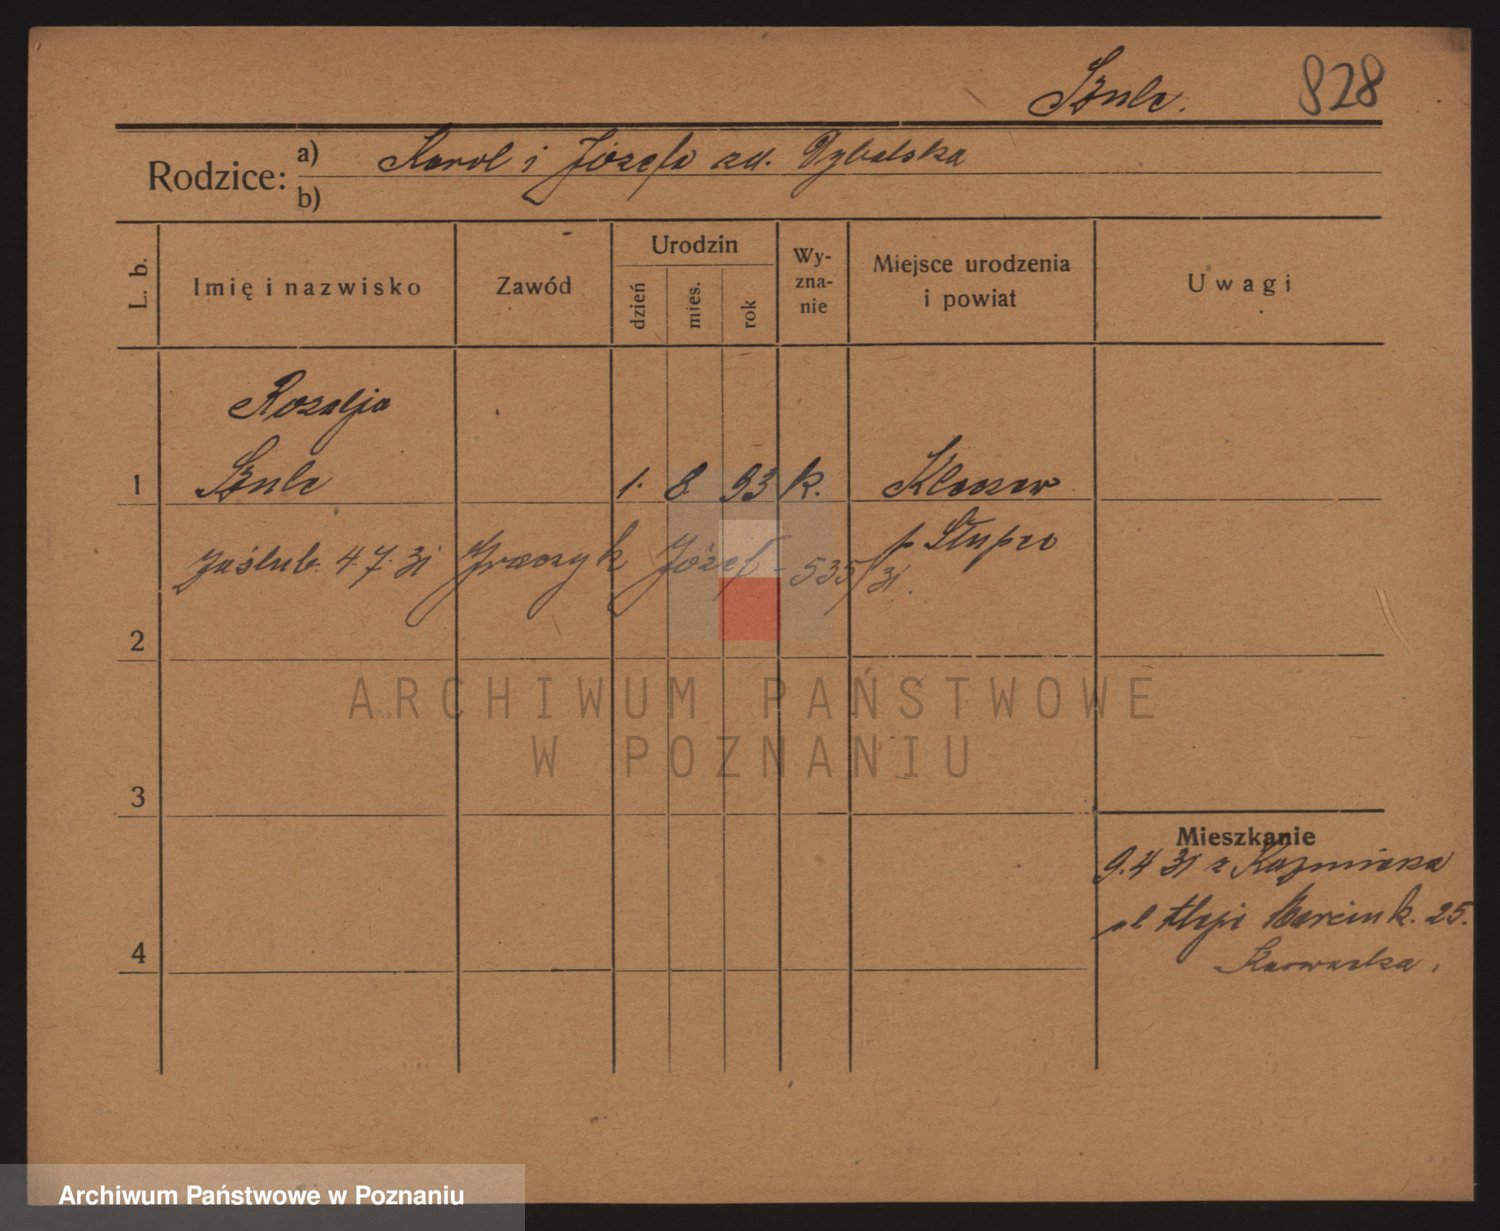 Szulc.
828
Rodzice:
a) Karol i Józefa zd. Dybalska
b)
L. b.
Imię i nazwisko
Zawód
Urodzin
dzień
mies.
rok
Wy-
zna-
nie
Miejsce urodzenia
i powiat
Uwagi
Rozalja
1 Szulc 1. 8 93 k.
zaślub. 4 7. 31 Józef - 535/31.
p. Słupca
2
ARCHIWUM PAŃSTWOWE
W POZNANIU
3
Mieszkanie
9.4 31 z Kazmierza
Marcink. 25.
4
Archiwum Państwowe w Poznaniu